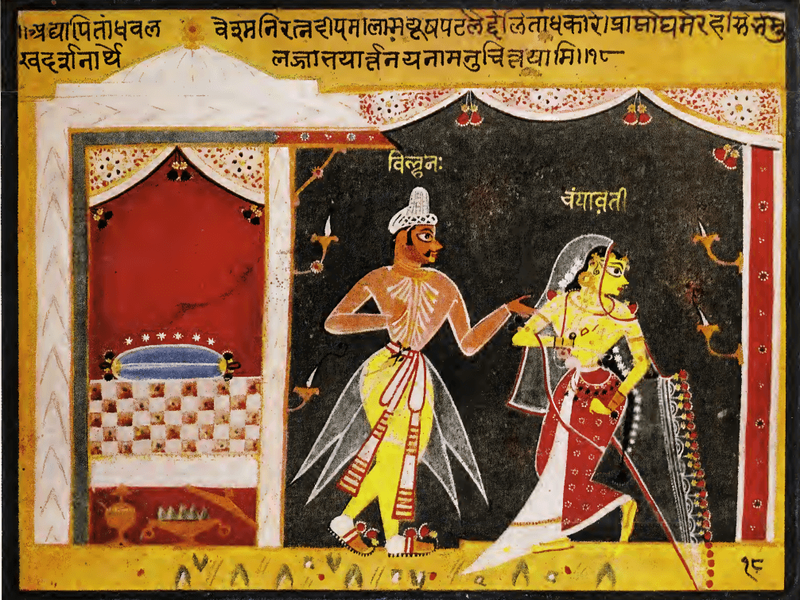 ॥अद्यापि तां धवल वेश्मनि रत्नदीपमालामयूषपटलैर्दलितांधकारे। प्राप्तोद्यमे रहसि संमु
खदर्शनार्थं लज्जाभयार्त्तनयनामनुचिंतयामि॥१८
विल्हनः
चंपावती
१८